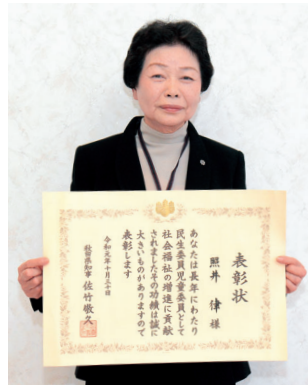 表彰状
照井 律 様
あなたは長年にわたり
民生委員児童委員として
社会福祉の増進に貢献
されましたその功績は誠に
大きいものがありますので
表彰します
令和元年十月三十日
秋田県知事 佐竹敬久